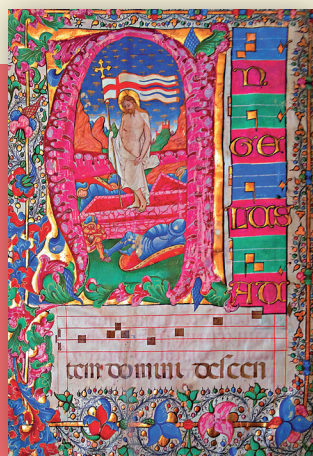 AN
GE
LUS
AU
tem domini descen